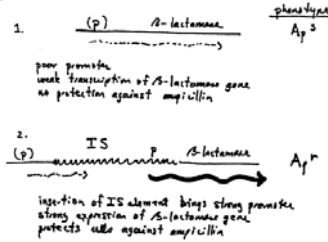 phenotype
1. (p) β-lactamase Ap s
poor promoter
weak transcription of β-lactamase gene
no protection against ampicillin
2. IS
(p) p β-lactamase Ap r
insertion of IS element brings strong promoter
strong expression of β-lactamase gene
protects cells against ampicillin